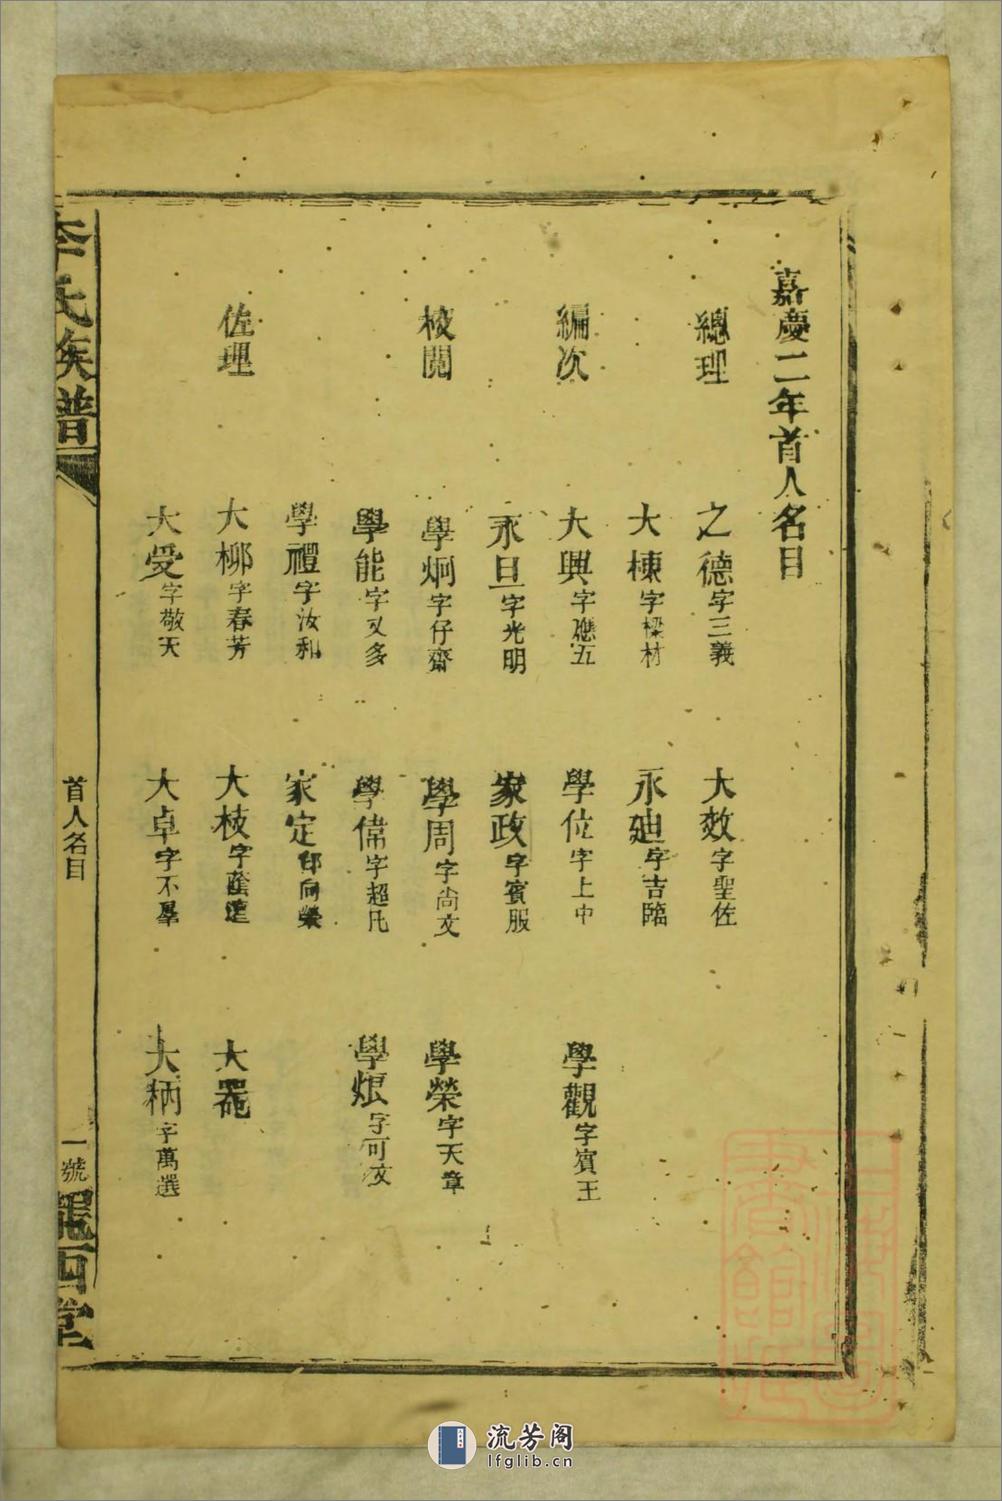 嘉慶二年首人名目
總理
之德字三義
大效字聖佐
大棟字樑材
永迪字吉臨
編次
大興字應五
學位字上中
學觀字賓王
永旦字光明
家政字賓服
校閱
學炯字仔齋
學周字尚文
學榮字天章
學能字又多
學偉字超凡
學烺字可文
學禮字汝和
家定字向榮
佐理
大柳字春芳
大枝字蔭遠
大器
大受字敬天
大卓字不羣
大柄字萬選
李氏族譜
首人名目
一號
隴西堂
上海圖書館藏
流芳阁
lfglib.cn